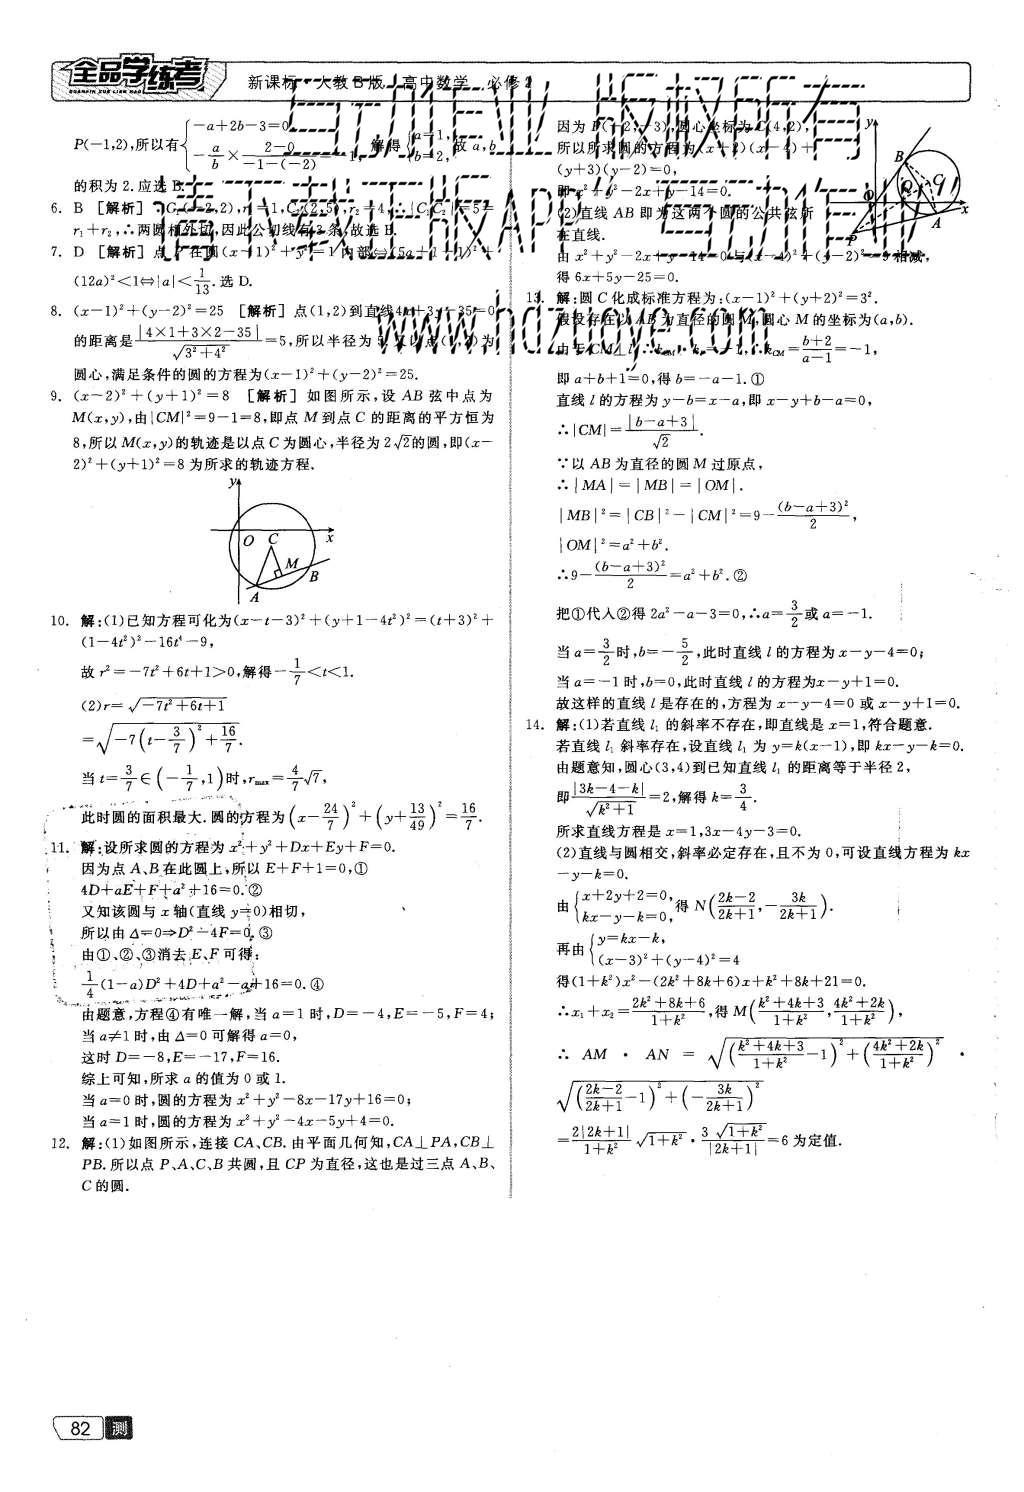 全品学练考
QUANPIN XUE LIAN KAO
新课标 人教B版 高中数学 必修2
P(-1,2),所以有{-a+2b-3=0, -a/b×(2-0)/(-1-(-2))=-1, 解得{a=1, b=2, 故a,b
的积为2.应选B.
6. B [解析] r₁=1, r₂=4,∴|C₁C₂|=5=
r₁+r₂,∴两圆相外切,因此公切线有3条,故选B.
7. D [解析] 点P在圆(x-1)²+y²=1内部⇔(5a+1-1)²+
(12a)²<1⇔|a|<1/13.选D.
8. (x-1)²+(y-2)²=25 [解析] 点(1,2)到直线4x+3y-35=0
的距离是|4×1+3×2-35|/√(3²+4²)=5,所以半径为5.又以点(1,2)为
圆心,满足条件的圆的方程为(x-1)²+(y-2)²=25.
9. (x-2)²+(y+1)²=8 [解析] 如图所示,设AB弦中点为
M(x,y),由|CM|²=9-1=8,即点M到点C的距离的平方恒为
8,所以M(x,y)的轨迹是以点C为圆心,半径为2√2的圆,即(x-
2)²+(y+1)²=8为所求的轨迹方程.
y
O C x
M
B
A
10. 解:(1)已知方程可化为(x-t-3)²+(y+1-4t²)²=(t+3)²+
(1-4t²)²-16t⁴-9,
故r²=-7t²+6t+1>0,解得-1/7<t<1.
(2)r=√(-7t²+6t+1)
=√(-7(t-3/7)²+16/7).
当t=3/7∈(-1/7,1)时,rmax=4/7√7,
此时圆的面积最大.圆的方程为(x-24/7)²+(y+13/49)²=16/7.
11. 解:设所求圆的方程为x²+y²+Dx+Ey+F=0.
因为点A、B在此圆上,所以E+F+1=0,①
4D+aE+F+a²+16=0.②
又知该圆与x轴(直线y=0)相切,
所以由Δ=0⇒D²-4F=0.③
由①、②、③消去E、F可得:
1/4(1-a)D²+4D+a²-a+16=0.④
由题意,方程④有唯一解,当a=1时,D=-4,E=-5,F=4;
当a≠1时,由Δ=0可解得a=0,
这时D=-8,E=-17,F=16.
综上可知,所求a的值为0或1.
当a=0时,圆的方程为x²+y²-8x-17y+16=0;
当a=1时,圆的方程为x²+y²-4x-5y+4=0.
12. 解:(1)如图所示,连接CA、CB.由平面几何知,CA⊥PA,CB⊥
PB.所以点P、A、C、B共圆,且CP为直径,这也是过三点A、B、
C的圆.
因为P(-2,-3),圆心坐标为C(4,2),
所以所求圆的方程为(x+2)(x-4)+
(y+3)(y-2)=0,
即x²+y²-2x+y-14=0.
(2)直线AB即为这两个圆的公共弦所
在直线.
由x²+y²-2x+y-14=0与(x-4)²+(y-2)²=9相减,
得6x+5y-25=0.
y
B
C
x
A
P
13. 解:圆C化成标准方程为:(x-1)²+(y+2)²=3².
假设存在以AB为直径的圆M,圆心M的坐标为(a,b).
由于CM⊥l, kCM=(b+2)/(a-1)=-1,
即a+b+1=0,得b=-a-1.①
直线l的方程为y-b=x-a,即x-y+b-a=0,
∴|CM|=|b-a+3|/√2.
∵以AB为直径的圆M过原点,
∴|MA|=|MB|=|OM|.
|MB|²=|CB|²-|CM|²=9-(b-a+3)²/2,
|OM|²=a²+b².
∴9-(b-a+3)²/2=a²+b².②
把①代入②得2a²-a-3=0,∴a=3/2或a=-1.
当a=3/2时,b=-5/2,此时直线l的方程为x-y-4=0;
当a=-1时,b=0,此时直线l的方程为x-y+1=0.
故这样的直线l是存在的,方程为x-y-4=0或x-y+1=0.
14. 解:(1)若直线l₁的斜率不存在,即直线是x=1,符合题意.
若直线l₁斜率存在,设直线l₁为y=k(x-1),即kx-y-k=0.
由题意知,圆心(3,4)到已知直线l₁的距离等于半径2,
即|3k-4-k|/√(k²+1)=2,解得k=3/4.
所求直线方程是x=1,3x-4y-3=0.
(2)直线与圆相交,斜率必定存在,且不为0,可设直线方程为kx
-y-k=0.
由{x+2y+2=0, kx-y-k=0, 得N((2k-2)/(2k+1),-3k/(2k+1)).
再由{y=kx-k, (x-3)²+(y-4)²=4
得(1+k²)x²-(2k²+8k+6)x+k²+8k+21=0.
∴x₁+x₂=(2k²+8k+6)/(1+k²),得M((k²+4k+3)/(1+k²),(4k²+2k)/(1+k²)),
∴ AM · AN = √(((k²+4k+3)/(1+k²)-1)²+((4k²+2k)/(1+k²))²) ·
√(((2k-2)/(2k+1)-1)²+(-3k/(2k+1))²)
=2|2k+1|/(1+k²)√(1+k²)·3√(1+k²)/|2k+1|=6为定值.
www.hdzuoye.com
82 测